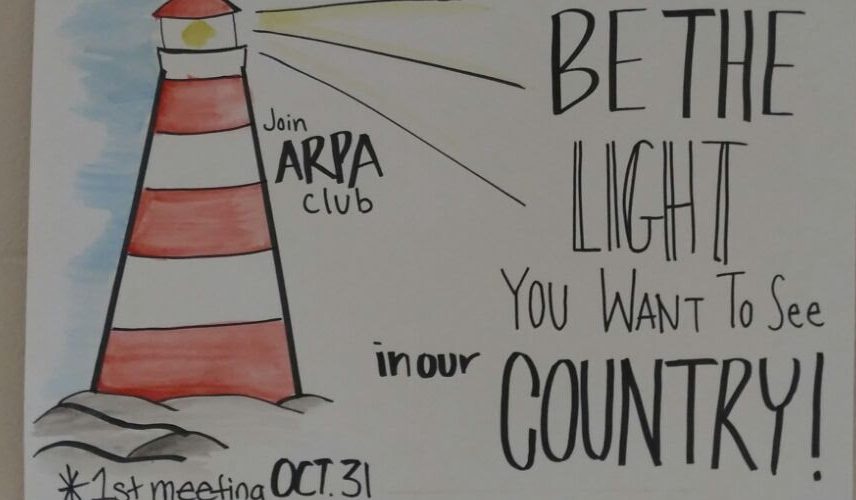 BE THE
LIGHT
YOU WANT To See
in our COUNTRY!
Join
ARPA
club
*1st meeting OCT. 31